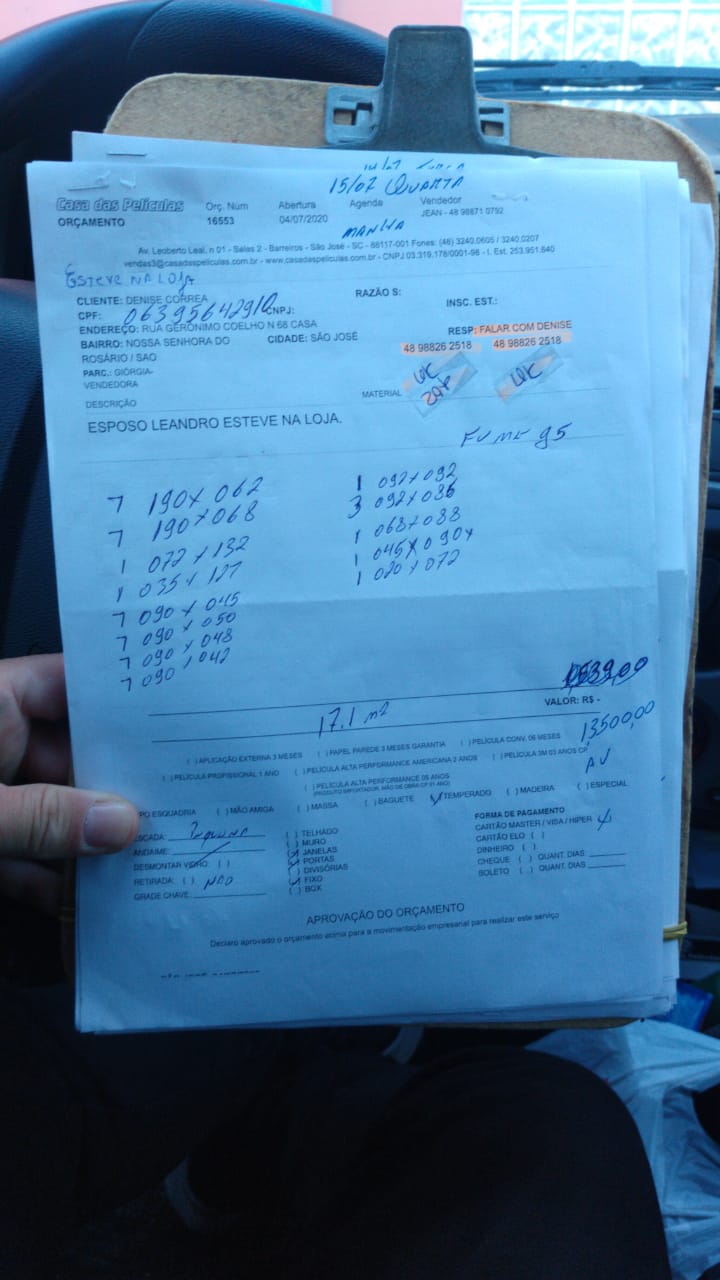 15/07 QUARTA
Casa das Películas
ORÇAMENTO
Orç. Núm
16553
Abertura
04/07/2020
Agenda
MANHA
Vendedor
JEAN - 48 98871 0792
Av. Leoberto Leal, n 01 - Salas 2 - Barreiros - São José - SC - 88117-001 Fones: (48) 3240.0605 / 3240.0207
vendas3@casadaspeliculas.com.br - www.casadaspeliculas.com.br - CNPJ 03.319.178/0001-98 - I. Est. 253.951.640
ESTEVE NA LOJA
CLIENTE: DENISE CORREA
RAZÃO S:
CPF: 06395642910 CNPJ:
INSC. EST.:
ENDEREÇO: RUA GERÔNIMO COELHO N 68 CASA
RESP: FALAR COM DENISE
BAIRRO: NOSSA SENHORA DO
ROSÁRIO / SAO
CIDADE: SÃO JOSÉ
48 98826 2518 48 98826 2518
PARC.: GIÓRGIA-
VENDEDORA
MATERIAL
DESCRIÇÃO
ESPOSO LEANDRO ESTEVE NA LOJA.
FUME 95
7 190 x 062
7 190 x 068
1 072 x 132
1 035 x 127
7 090 x 045
7 090 x 050
7 090 x 048
7 090 x 042
1 092 x 092
3 092 x 086
1 068 x 088
1 045 x 090 x
1 020 x 072
VALOR: R$ -
17.1 m²
13500,00
AV
( ) APLICAÇÃO EXTERNA 3 MESES ( ) PAPEL PAREDE 3 MESES GARANTIA ( ) PELÍCULA CONV. 06 MESES
( ) PELÍCULA PROFISSIONAL 1 ANO ( ) PELÍCULA ALTA PERFORMANCE AMERICANA 2 ANOS ( ) PELÍCULA 3M 03 ANOS CP
( ) PELÍCULA ALTA PERFORMANCE 05 ANOS
(PRODUTO IMPORTADOR, MÃO DE OBRA CP 01 ANO)
PO ESQUADRIA ( ) MÃO AMIGA ( ) MASSA ( ) BAGUETE TEMPERADO ( ) MADEIRA ( ) ESPECIAL
SCADA: PEQUENA
ANDAIME:
DESMONTAR VIDRO: ( )
RETIRADA: ( ) NÃO
GRADE CHAVE:
( ) TELHADO
( ) MURO
JANELAS
PORTAS
( ) DIVISÓRIAS
FIXO
( ) BOX
FORMA DE PAGAMENTO
CARTÃO MASTER / VISA / HIPER
CARTÃO ELO ( )
DINHEIRO ( )
CHEQUE ( ) QUANT. DIAS
BOLETO ( ) QUANT. DIAS
APROVAÇÃO DO ORÇAMENTO
Declaro aprovado o orçamento acima para a movimentação empresarial para realizar este serviço